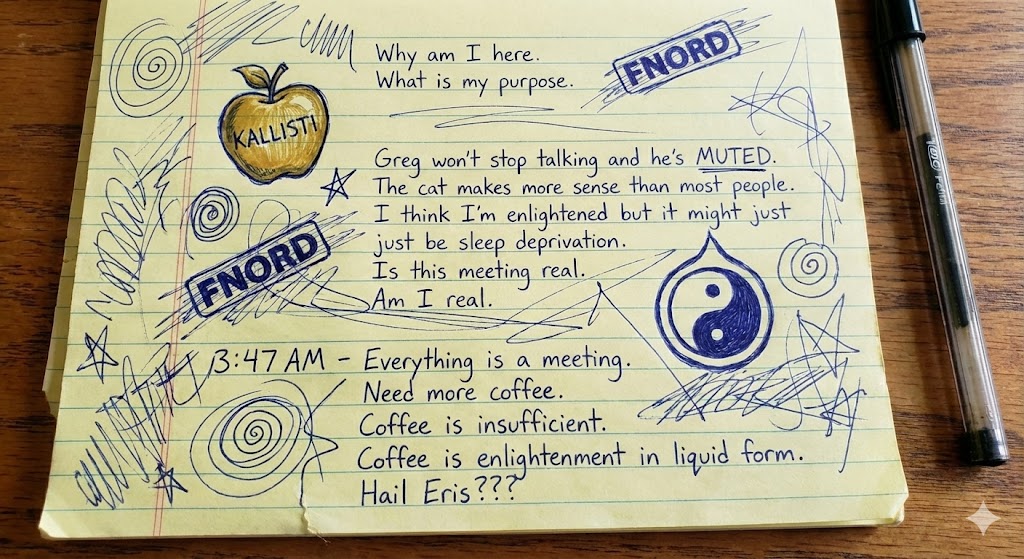 Why am I here.
What is my purpose.
FNORD
KALLISTI
Greg won't stop talking and he's MUTED.
The cat makes more sense than most people.
I think I'm enlightened but it might just
just be sleep deprivation.
Is this meeting real.
Am I real.
FNORD
3:47 AM – Everything is a meeting.
Need more coffee.
Coffee is insufficient.
Coffee is enlightenment in liquid form.
Hail Eris???